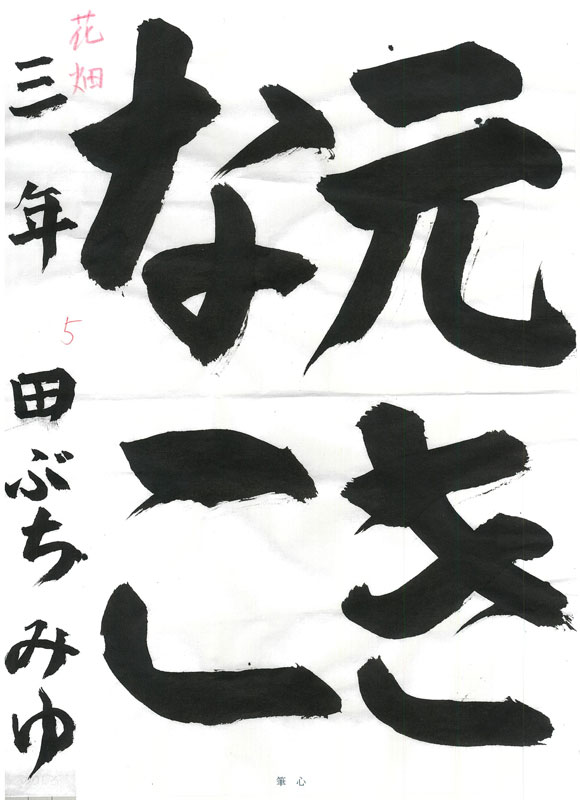 元き
なこ
三年 田ぶちみゆ
花畑
5
筆心